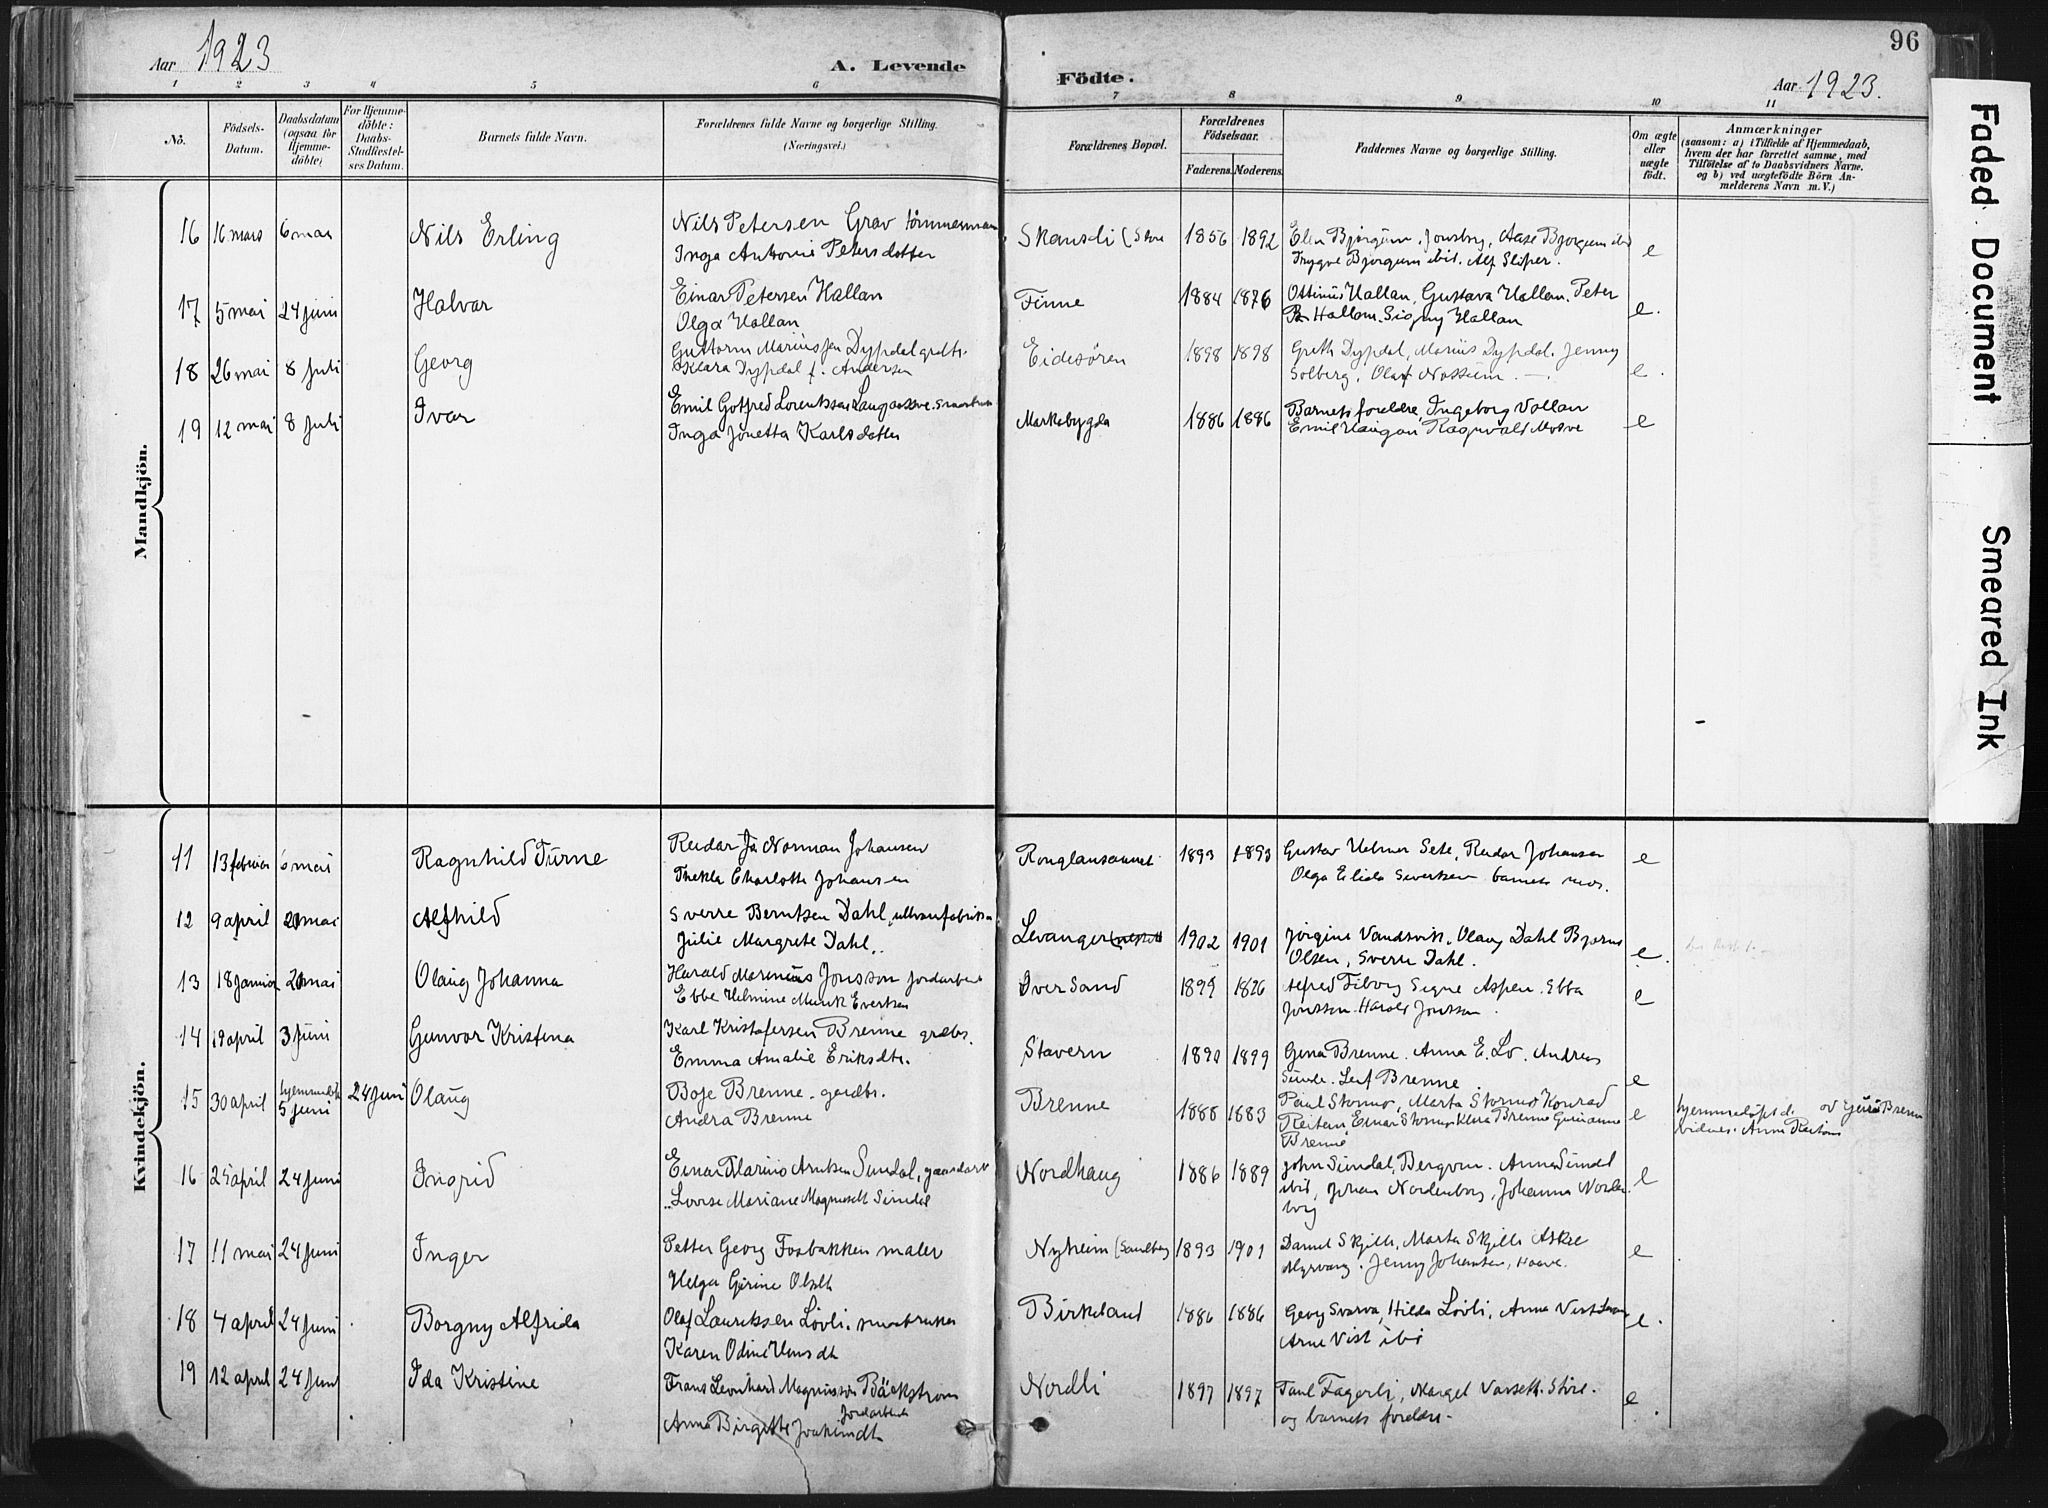 Aar 1923 A. Levende
Födte. Aar 1923. 96
1 2 3 4 5 6 7 8 9 10 11
No. Födsels-Datum. Daabsdatum (ogsaa for Hjemme-döbte) For Hjemme-döbte: Daabs-Stadfæstel-ses Datum. Barnets fulde Navn. Forældrenes fulde Navne og borgerlige Stilling. (Næringsvei.)
Forældrenes Bopæl. Forældrenes Födselsaar. Faderens. Moderens. Faddernes Navne og borgerlige Stilling. Om ægte eller uægte födt. Anmærkninger (saasom: a) i Tilfælde af Hjemmedaab, hvem der har forrettet samme, med Tilföielse af to Daabsvidners Navne. og b) ved uægtefödte Börn An-melderens Navn m. V.)
Mandkjön.
16 16 mars 6 mai Nils Erling Nils Petersen Grav tömmermann
Inga Antonie Petersdatter
Skansli 1856 1892 Bjørgum, Aase Bjørgum ibid
Trygve Bjorgum ibid. Alf Sliper. e
17 5 mai 24 juni Halvar Einar Petersen Hallan
Olga Hallan
Finne 1884 1876 Ottinius Hallan, Gustava Hallan. Peter
Hallan. Signy Hallan e.
18 26 mai 8 juli Georg Guttorm Mariussen Dypdal grdb.
Klara Dypdal f. Andersen
Eidesören 1898 1898 Greth Dypdal, Marius Dypdal. Jenny
Solberg, Olaf e.
19 12 mai 8 juli Ivar Emil Gotfred Lorentssen
Inga Jonetta Karlsdatter
Markabygda 1886 1886 Barnets foreldre, Ingeborg Vollan
Emil Haugan Ragnvald e
Kvindekjön.
11 13 februar 6 mai Ragnhild Turne Reidar Norman Johansen
Thekla Charlotte Johansen
1893 1893 Gustav Helmer Sete, Reidar Johansen
Olga Elida Sivertsen barnets mor. e
12 9 april 20 mai Alfhild Sverre Berntsen Dahl, ulvarefabrik
Julie Margrete Dahl.
Levanger 1902 1901 Jørgine Vandsvik, Olaug Dahl Bjarne
Olsen, Sverre Dahl. e.
13 18 januar 20 mai Olaug Johanna Harald Marinius Jonsson jordarbeid
Ebba Helmine Munk Evertsen
Iver Sand 1899 1896 Alfred Fiborg Signe Aspen. Ebba
Jonsson. Harald Jonsson. e
14 19 april 3 juni Gunvor Kristina Karl Kristofersen Brenne grdbr.
Emma Amalie Eriksdtr.
Stavern 1890 1899 Gena Brenne. Anna E. Lo. Andreas
Sunde. Leif Brenne e
15 30 april hjemmedöbt 5 juni 24 juni Olaug Boje Brenne. gardbr.
Andra Brenne
Brenne 1888 1883 Paul Stormo, Marta Stormo Konrad
Reitan, Einar Stormo Klara Brenne
Brenne e hjemmedöpt d. av Brenne
vidner: Anna Reitan
16 25 april 24 juni Ingrid Einar Marius Arntsen Sundal, gaardarb
Lovise Mariane Magnusdt Sundal
Nordhaug 1886 1889 John Sundal, Bergvin. Anna Sundal
ibid, Johan Nordenborg, Johanna Norden
borg e
17 11 mai 24 juni Inger Petter Georg Fosbakken maler
Helga Gjørine Olsdt
Nyheim (Sandberg 1893 1901 Daniel Skjelli, Marta Skjelli
Myrvang. Jenny Johansen, e
18 4 april 24 juni Borgny Alfrida Olaf Lauritssen Lövli. smabruker
Karen Odine
Birkeland 1886 1886 Georg Svarva, Hilda Lövli, Anna Vist
Arne Vist ibi e.
19 12 april 24 juni Ida Kristine Frans Leonhard Magnusson Bäckström
Jordarbeider
Anna Birgitte Joakimdt
Nordli 1897 1897 Paul Fagerli, Margel
og barnets foreldre. e
Faded Document
Smeared Ink